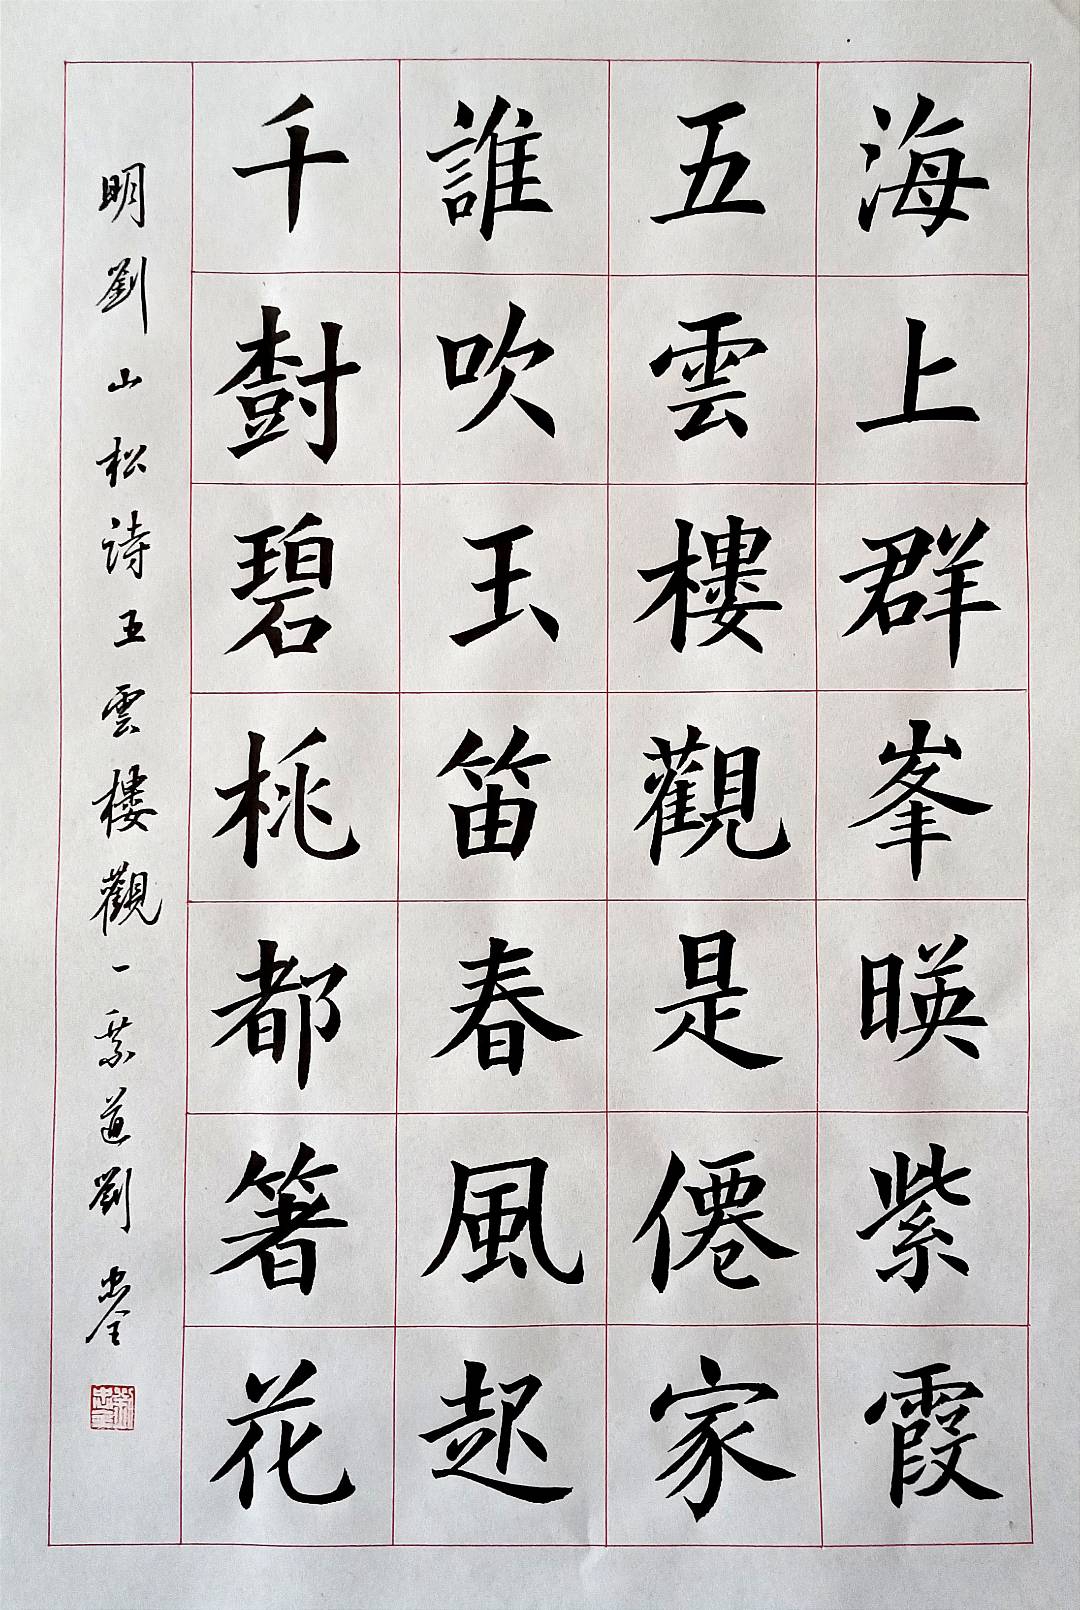 海上群峯暎紫霞
五雲樓觀是僊家
誰吹玉笛春風起
千樹碧桃都著花
明劉山松詩五雲樓觀一葉道劉忠全